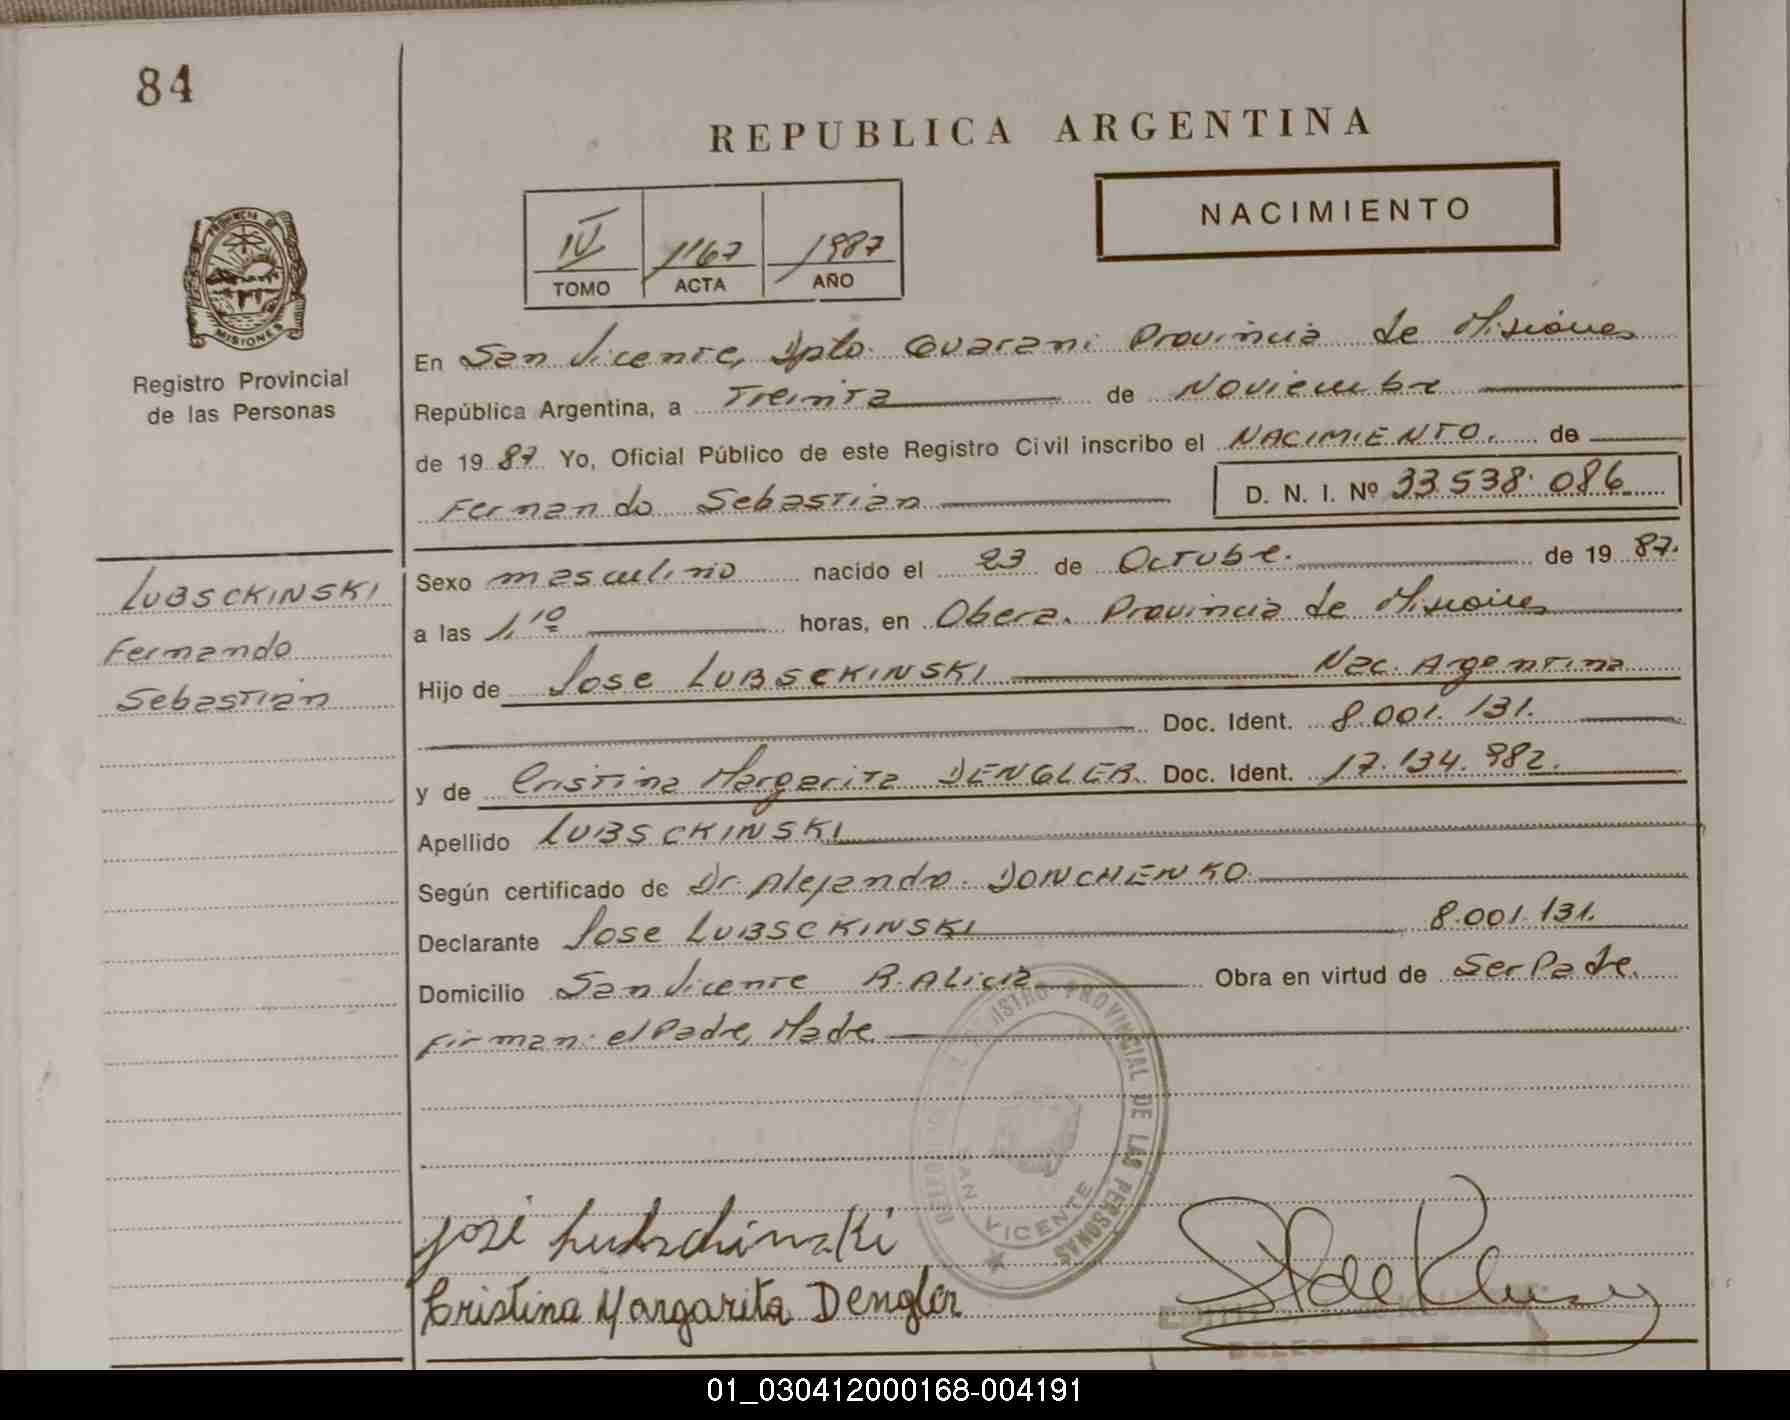 84
REPUBLICA ARGENTINA
NACIMIENTO
IV 1167 1987
TOMO ACTA AÑO
PROVINCIA DE MISIONES
Registro Provincial
de las Personas
En San Vicente, Dpto. Guarani Provincia de Misiones
República Argentina, a Treinta de Noviembre
de 1987 Yo, Oficial Público de este Registro Civil inscribo el NACIMIENTO. de
Fernando Sebastián D. N. I. Nº 33.538.086
LUBSCKINSKI
Fernando
Sebastián
Sexo masculino nacido el 23 de Octubre. de 1987.
a las 1,10 horas, en Obera. Provincia de Misiones
Hijo de Jose LUBSCKINSKI Nac. Argentina
Doc. Ident. 8.001.131.
y de Cristina Margarita DENGLER. Doc. Ident. 17.134.982.
Apellido LUBSCKINSKI
Según certificado de Dr. Alejandro DONCHENKO.
Declarante Jose LUBSCKINSKI 8.001.131.
Domicilio San Vicente R. Alicia Obra en virtud de Ser Padre.
Firman: el Padre, Madre.
REGISTRO PROVINCIAL DE LAS PERSONAS
SAN VICENTE
José Lubschinski
Cristina Margarita Dengler
01_030412000168-004191